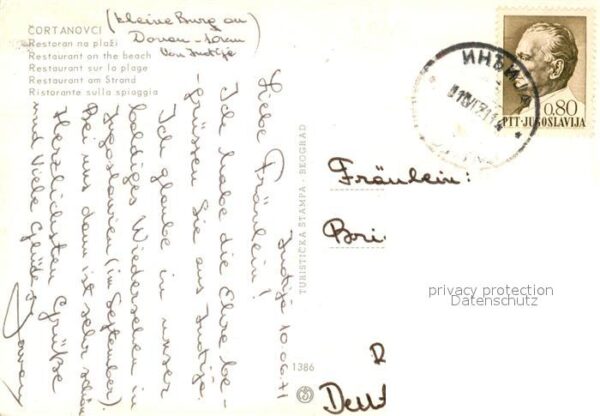 ČORTANOVCI (kleine Burg an
Donau-
von Inđija)
Restoran na plaži
Restaurant on the beach
Restaurant sur la plage
Restaurant am Strand
Ristorante sulla spiaggia
Inđija 10.06.71
Liebe Fräulein!
Ich habe die Ehre be-
grüssen Sie aus Inđija.
Ich glaube in unser
baldiges Wiedersehen in
Jugoslawien (im September).
Bei uns dann ist sehr schön
Herzlichsten Grüße
und Viele
TURISTIČKA ŠTAMPA - BEOGRAD
1386
ИНЂИЈА
0,80
PTT-JUGOSLAVIJA
Fräulein:
Bri
privacy protection
Datenschutz